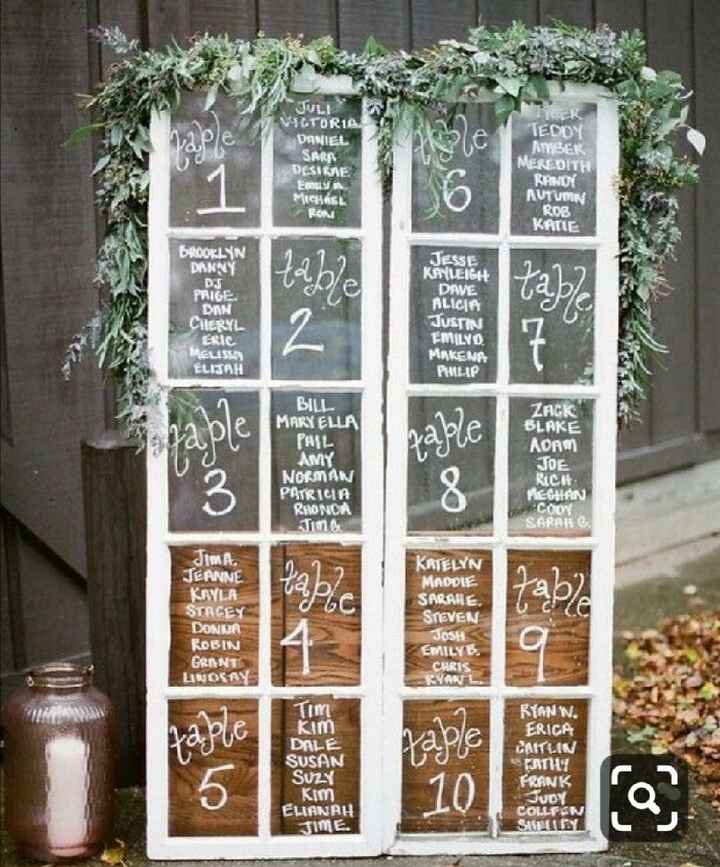 table
1
JULI
VICTORIA
DANIEL
SARA
DESIRAE
EMILY A.
MICHAEL
RON
BROOKLYN
DANNY
DJ
PAIGE
DAN
CHERYL
ERIC
MELISSA
ELIJAH
table
2
table
3
BILL
MARYELLA
PHIL
AMY
NORMAN
PATRICIA
RHONDA
JIM G.
JIM A.
JEANNE
KAYLA
STACEY
DONNA
ROBIN
GRANT
LINDSAY
table
4
table
5
TIM
KIM
DALE
SUSAN
SUZY
KIM
ELIANAH
JIM E.
table
6
TEDDY
AMBER
MEREDITH
RANDY
AUTUMN
ROB
KATIE
JESSE
KAYLEIGH
DAVE
ALICIA
JUSTIN
EMILY D.
MAKENA
PHILIP
table
7
table
8
ZACK
BLAKE
ADAM
JOE
RICH
MEGHAN
CODY
SARAH G.
KATELYN
MADDIE
SARAH E.
STEVEN
JOSH
EMILY B.
CHRIS
RYAN L.
table
9
table
10
RYAN W.
ERICA
CAITLIN
KATHY
FRANK
JUDY
COLLEEN
SHELLEY